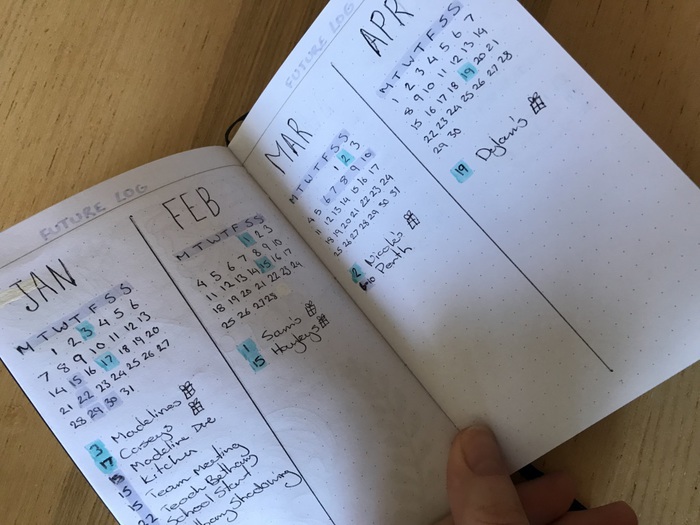 FUTURE LOG
JAN
M T W T F S S
1 2 3 4 5 6
7 8 9 10 11 12 13
14 15 16 17 18 19 20
21 22 23 24 25 26 27
28 29 30 31
3 Madelines
17 Caseys
Madeline Due
15 Kitchen
15 Team Meeting
Teach Bethany
22 School Starts
Shadowing
FEB
M T W T F S S
1 2 3
4 5 6 7 8 9 10
11 12 13 14 15 16 17
18 19 20 21 22 23 24
25 26 27 28
1 Sam's
15 Hayleys
FUTURE LOG
MAR
M T W T F S S
1 2 3
4 5 6 7 8 9 10
11 12 13 14 15 16 17
18 19 20 21 22 23 24
25 26 27 28 29 30 31
2 Nicole's
Perth
APR
M T W T F S S
1 2 3 4 5 6 7
8 9 10 11 12 13 14
15 16 17 18 19 20 21
22 23 24 25 26 27 28
29 30
19 Dylan's